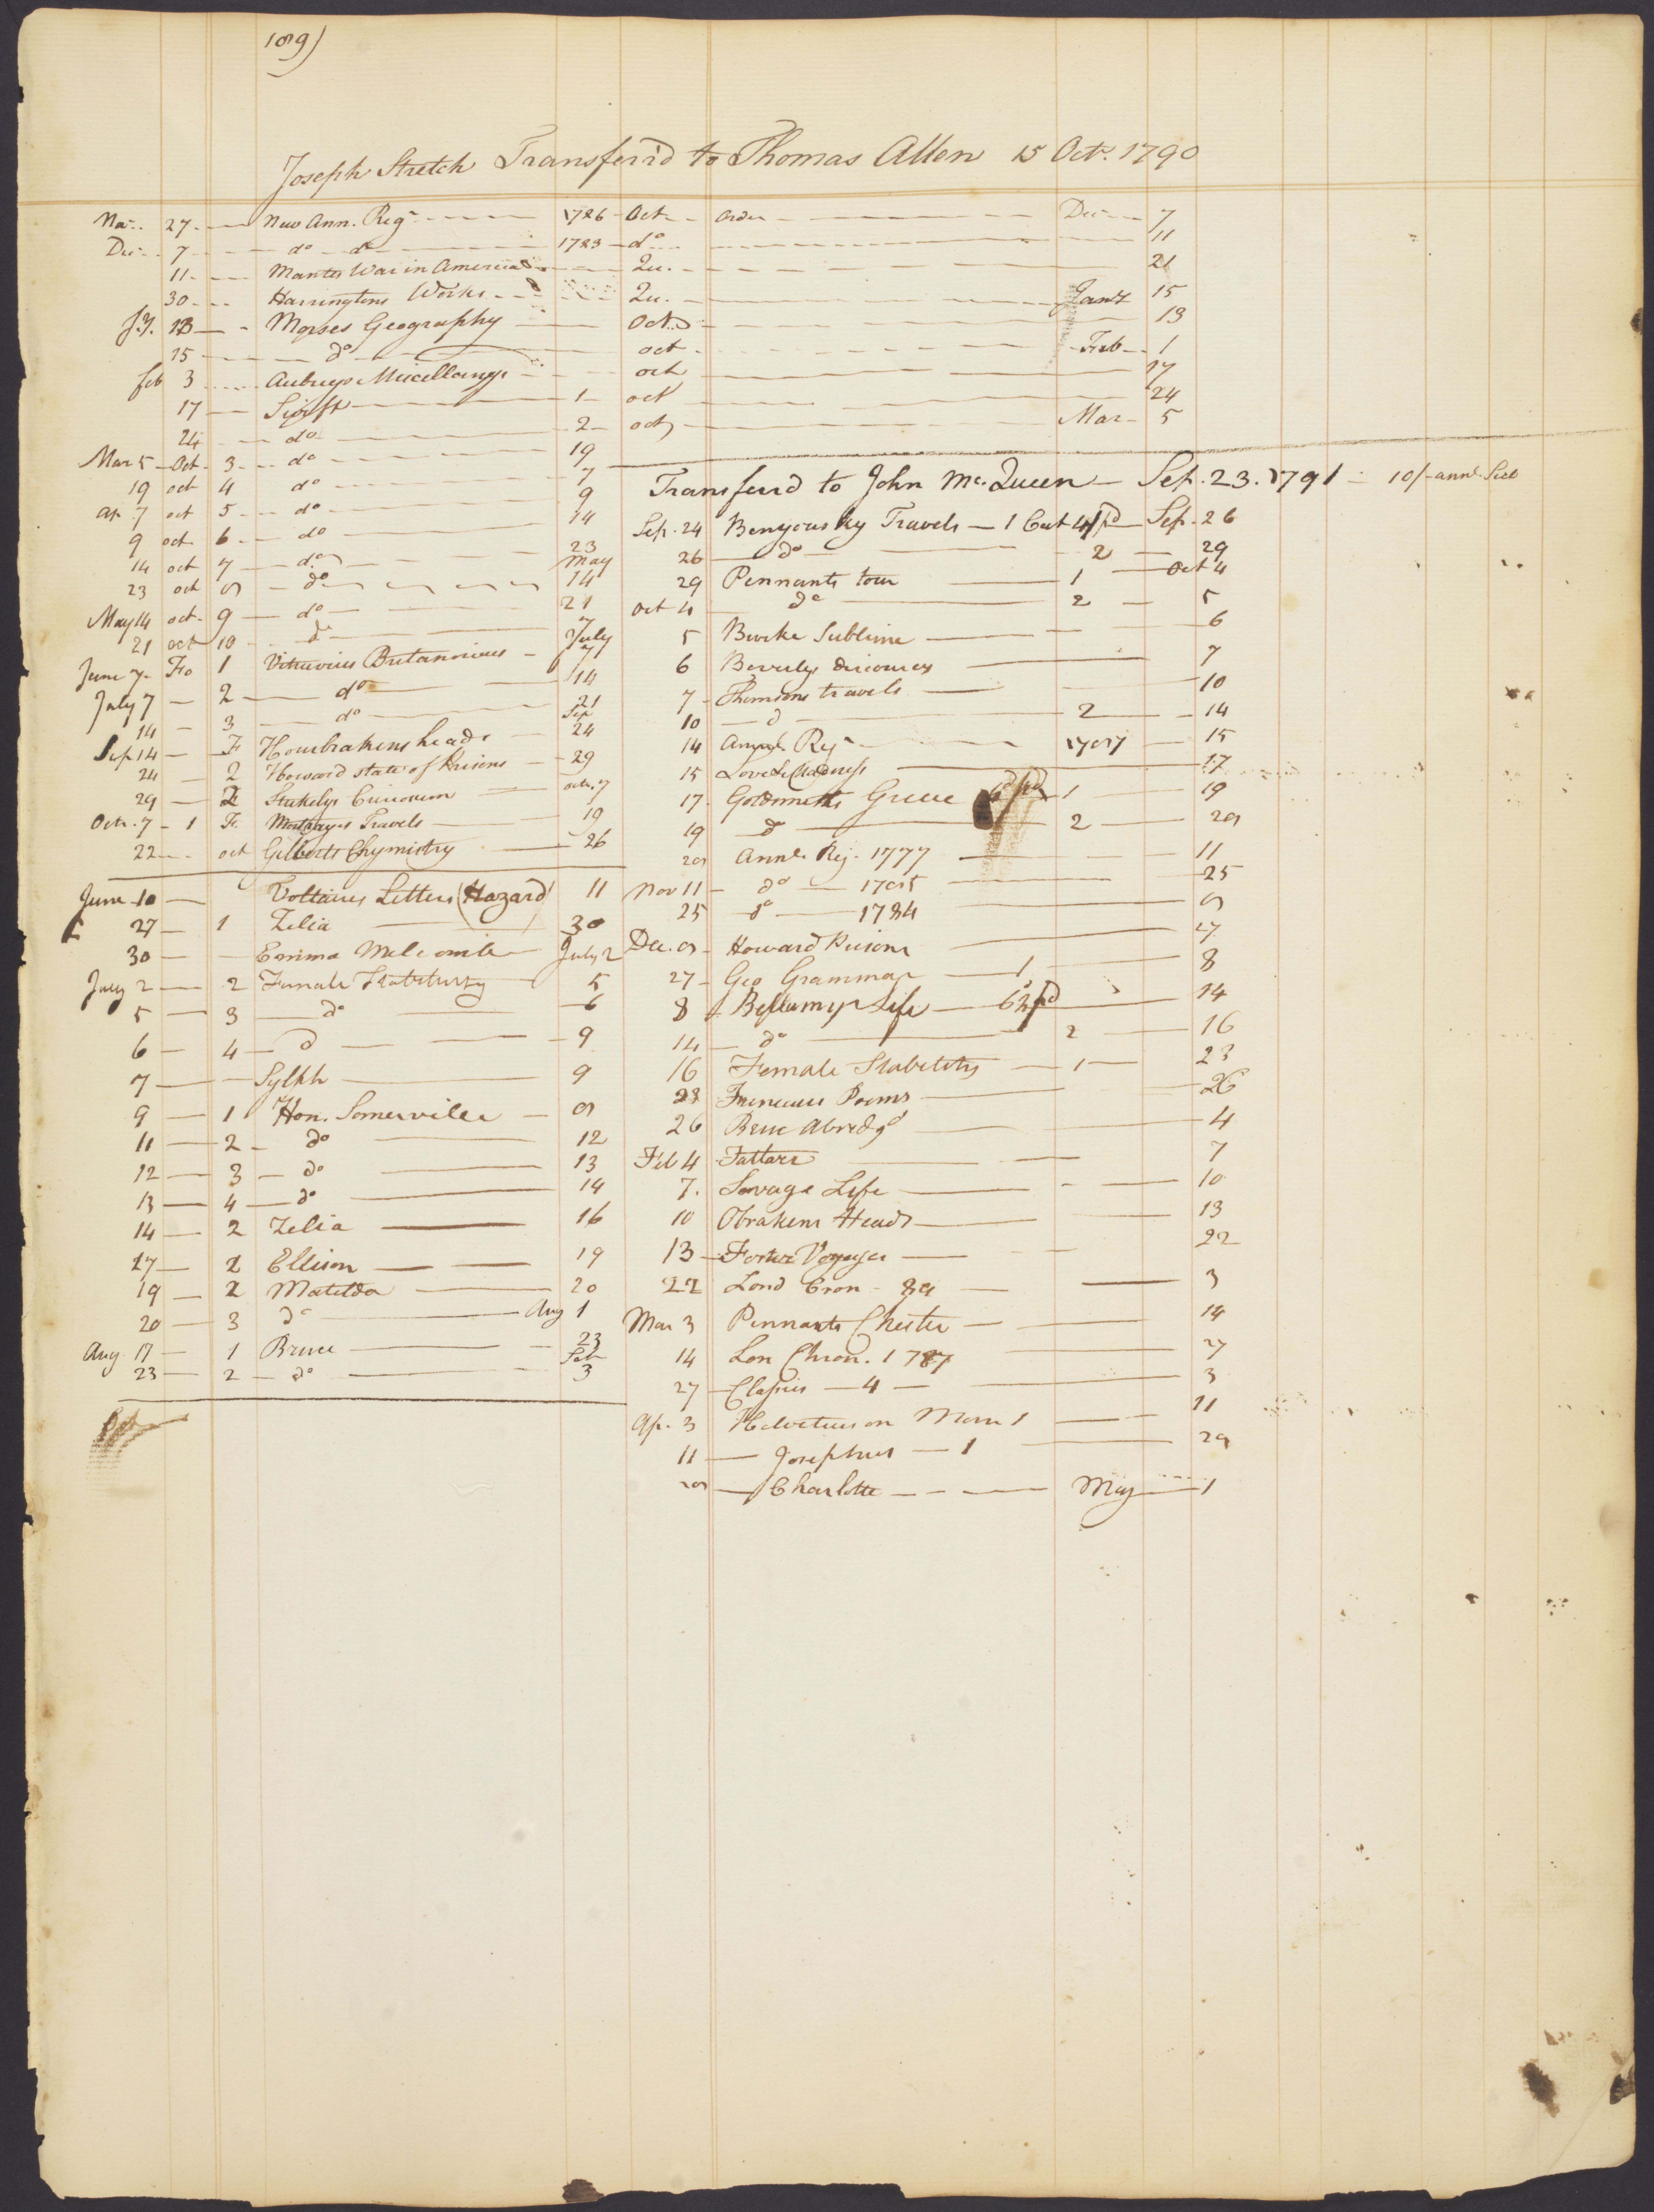 189)
Joseph Stretch Transferr'd to Thomas Allen 15 Octr. 1790
27 New Ann. Regr 1786 Oct order Dec 7
Dec 7 do do 1783 do 11
11 Mantes War in America Qu. 21
30 Harringtons Works Qu. Jany 15
13 Morses Geography Oct. 13
15 do oct Feb 1
feb 3 Aubreys Miscellanys oct 17
17 Swift 1 oct 24
24 do 2 oct Mar 5
Mar 5 Oct 3 do 19
19 oct 4 do 7
Ap 7 oct 5 do 9
9 oct 6 do 14
14 oct 7 do 23
23 oct 8 do May 14
May 14 oct. 9 do 21
21 oct 10 do 7
June 7 Fo 1 Vitruvius Britannicus July 7
July 7 2 do 14
14 3 do 21
Sep 14 F Houbrakens heads Sep 24
24 2 Howard state of Prisons 29
29 2 Stukelys Curiosum octr. 7
Octr. 7 1 Fo. Montrayes Travels 19
22 oct Gilberts Chymistry 26
June 10 Voltaires Letters (Hazard) 11
27 1 Zelia 30
30 Emma Melcombe July 2
July 2 2 Female Stability 5
5 3 do 6
6 4 d 9
7 Sylph 9
9 1 Hon. Somerville 8
11 2 do 12
12 3 do 13
13 4 do 14
14 2 Zelia 16
17 2 Ellison 19
19 2 Matilda 20
20 3 do Aug 1
Aug. 17 1 Bruce 23
23 2 do Feb 3
Transferrd to John Mc.Queen Sep. 23. 1791 10/- annl.
Sep. 24 Benyousky Travels 1 Cent 4 pd Sep. 26
26 do 2 29
29 Pennants tour 1 Oct 4
Oct 4 do 2 5
5 Burke Sublime 6
6 Beverlys discourses 7
7 Thomsons travels 10
10 d 2 14
14 Annual Regr 1787 15
15 Love & Madness 17
17 Goldsmiths Greece pd 1 19
19 d 2 28
28 Annl. Reg. 1777 11
Nov 11 do 1785 25
25 do 1784 8
Dec. 8 Howard Prisons 27
27 Geo Grammar 1 8
8 Bellamys Life pd 14
14 do 2 16
16 Female Stability 1 23
23 Freneaus Poems 26
26 Bruce Abredgd 4
Feb 4 Tattars 7
7. Savage Life 10
10 Obrakens Heads 13
13 Forster Voyages 22
22 Lond Cron 89 3
Mar 3 Pennants Chester 14
14 Lon Chron. 1787 27
27 Classics 4 3
Ap. 3 Helvetius on Man 1 11
11 Josephus 1 28
28 Charlotte May 1
Oct